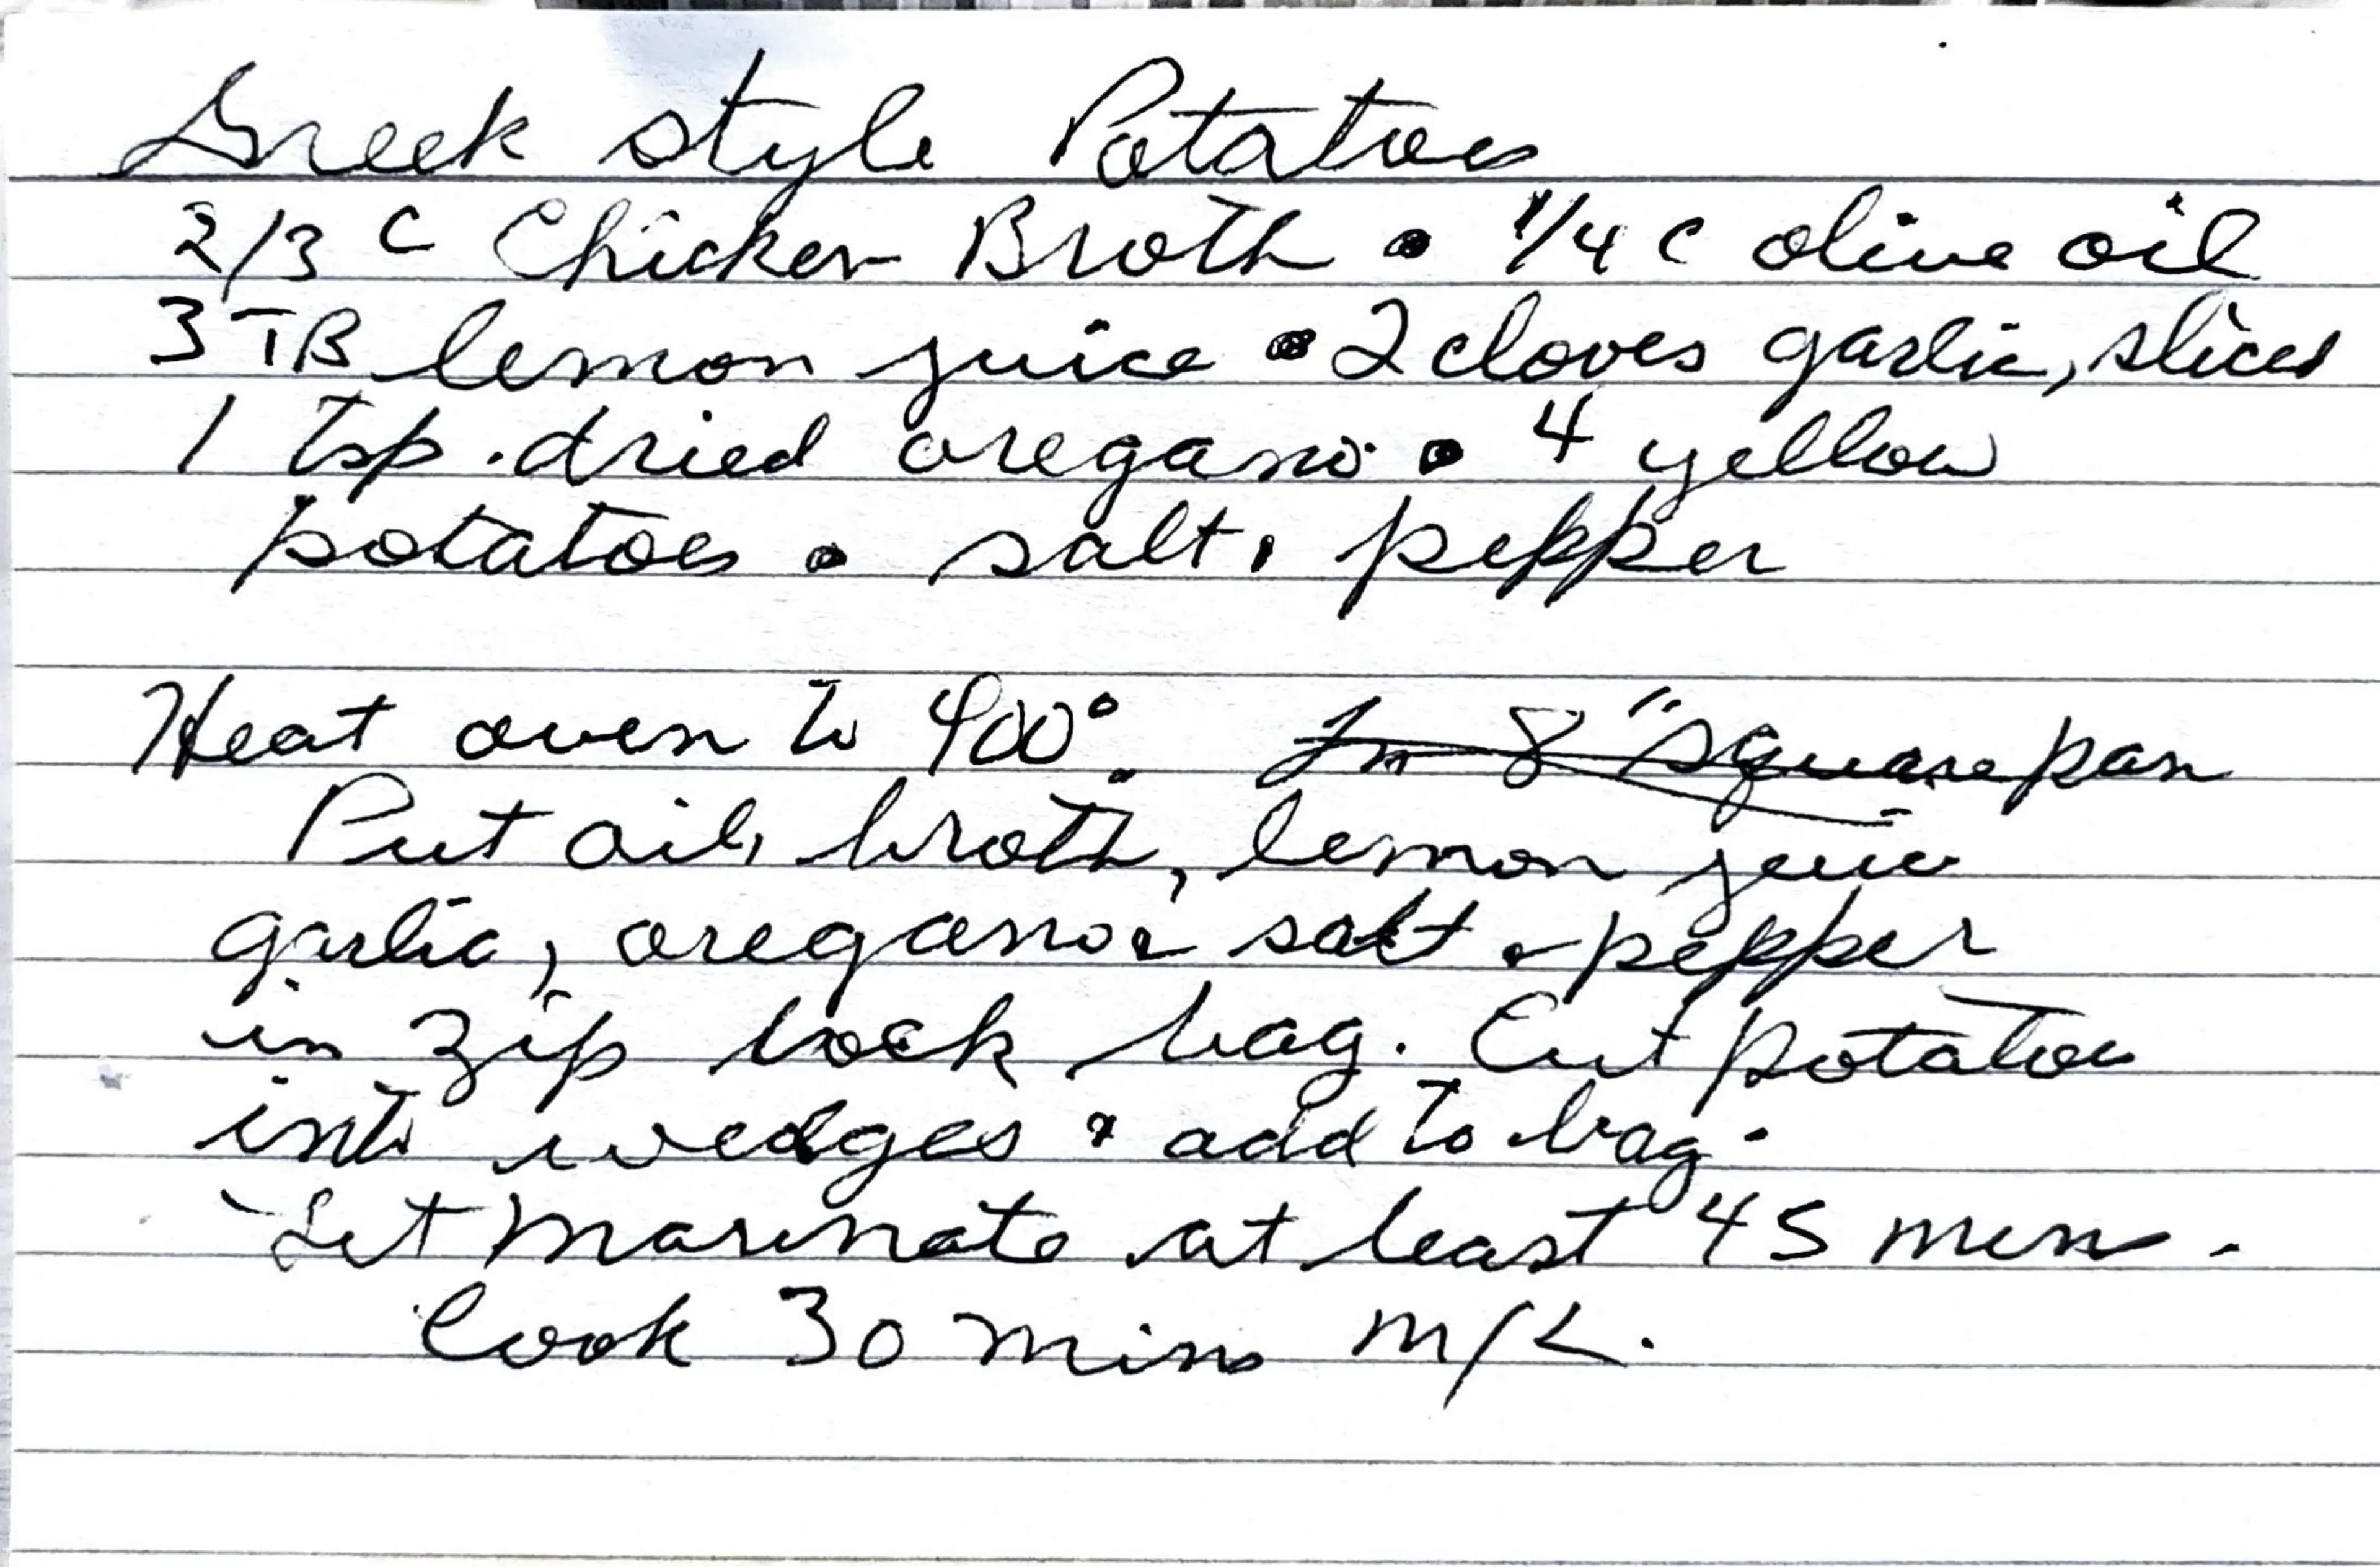 Greek style Potatoes
2/3 C Chicken Broth • 1/4 C olive oil
3 TB lemon juice • 2 cloves garlic, sliced
1 Tsp. dried oregano • 4 yellow
potatoes • salt, pepper
Heat oven to 400°. In 8" square pan
Put oil, broth, lemon juice
garlic, oregano & salt & pepper
in zip lock bag. Cut potatoes
into wedges & add to bag.
Let marinate at least 45 min.
Cook 30 mins m/L.